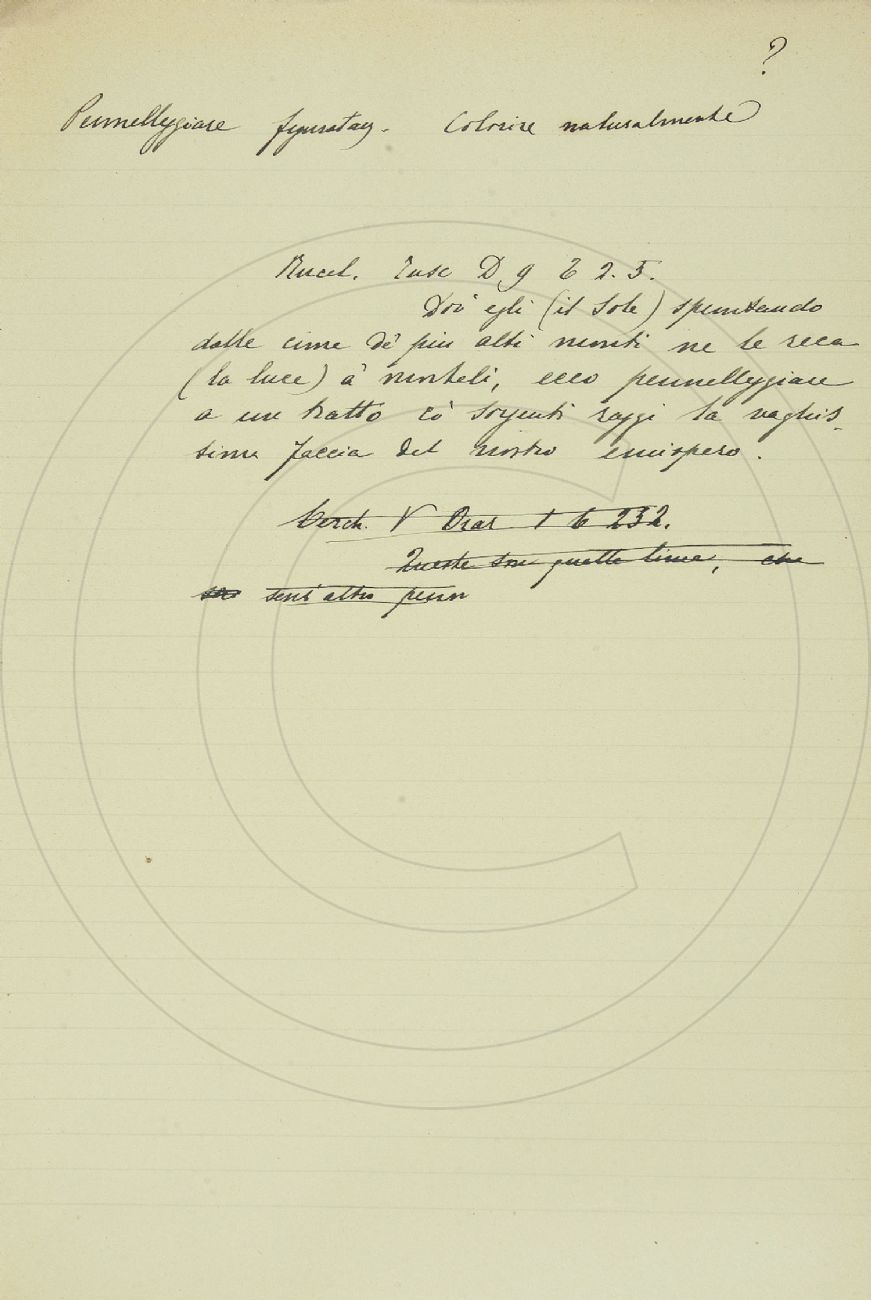 ?
Pennelleggiare figuratam. Colorire naturalmente
Rucel. Tusc D 9 T 2. 5.
egli (il Sole) spuntando
dalle cime de' più alti monti ne le reca
(la luce) a' mortali, ecco pennelleggiare
a un tratto co' sorgenti raggi la vaghis-
sima faccia del nostro emispero.
V Oraz 1 b 232.
Queste son quelle lime, che
senz'altro penn